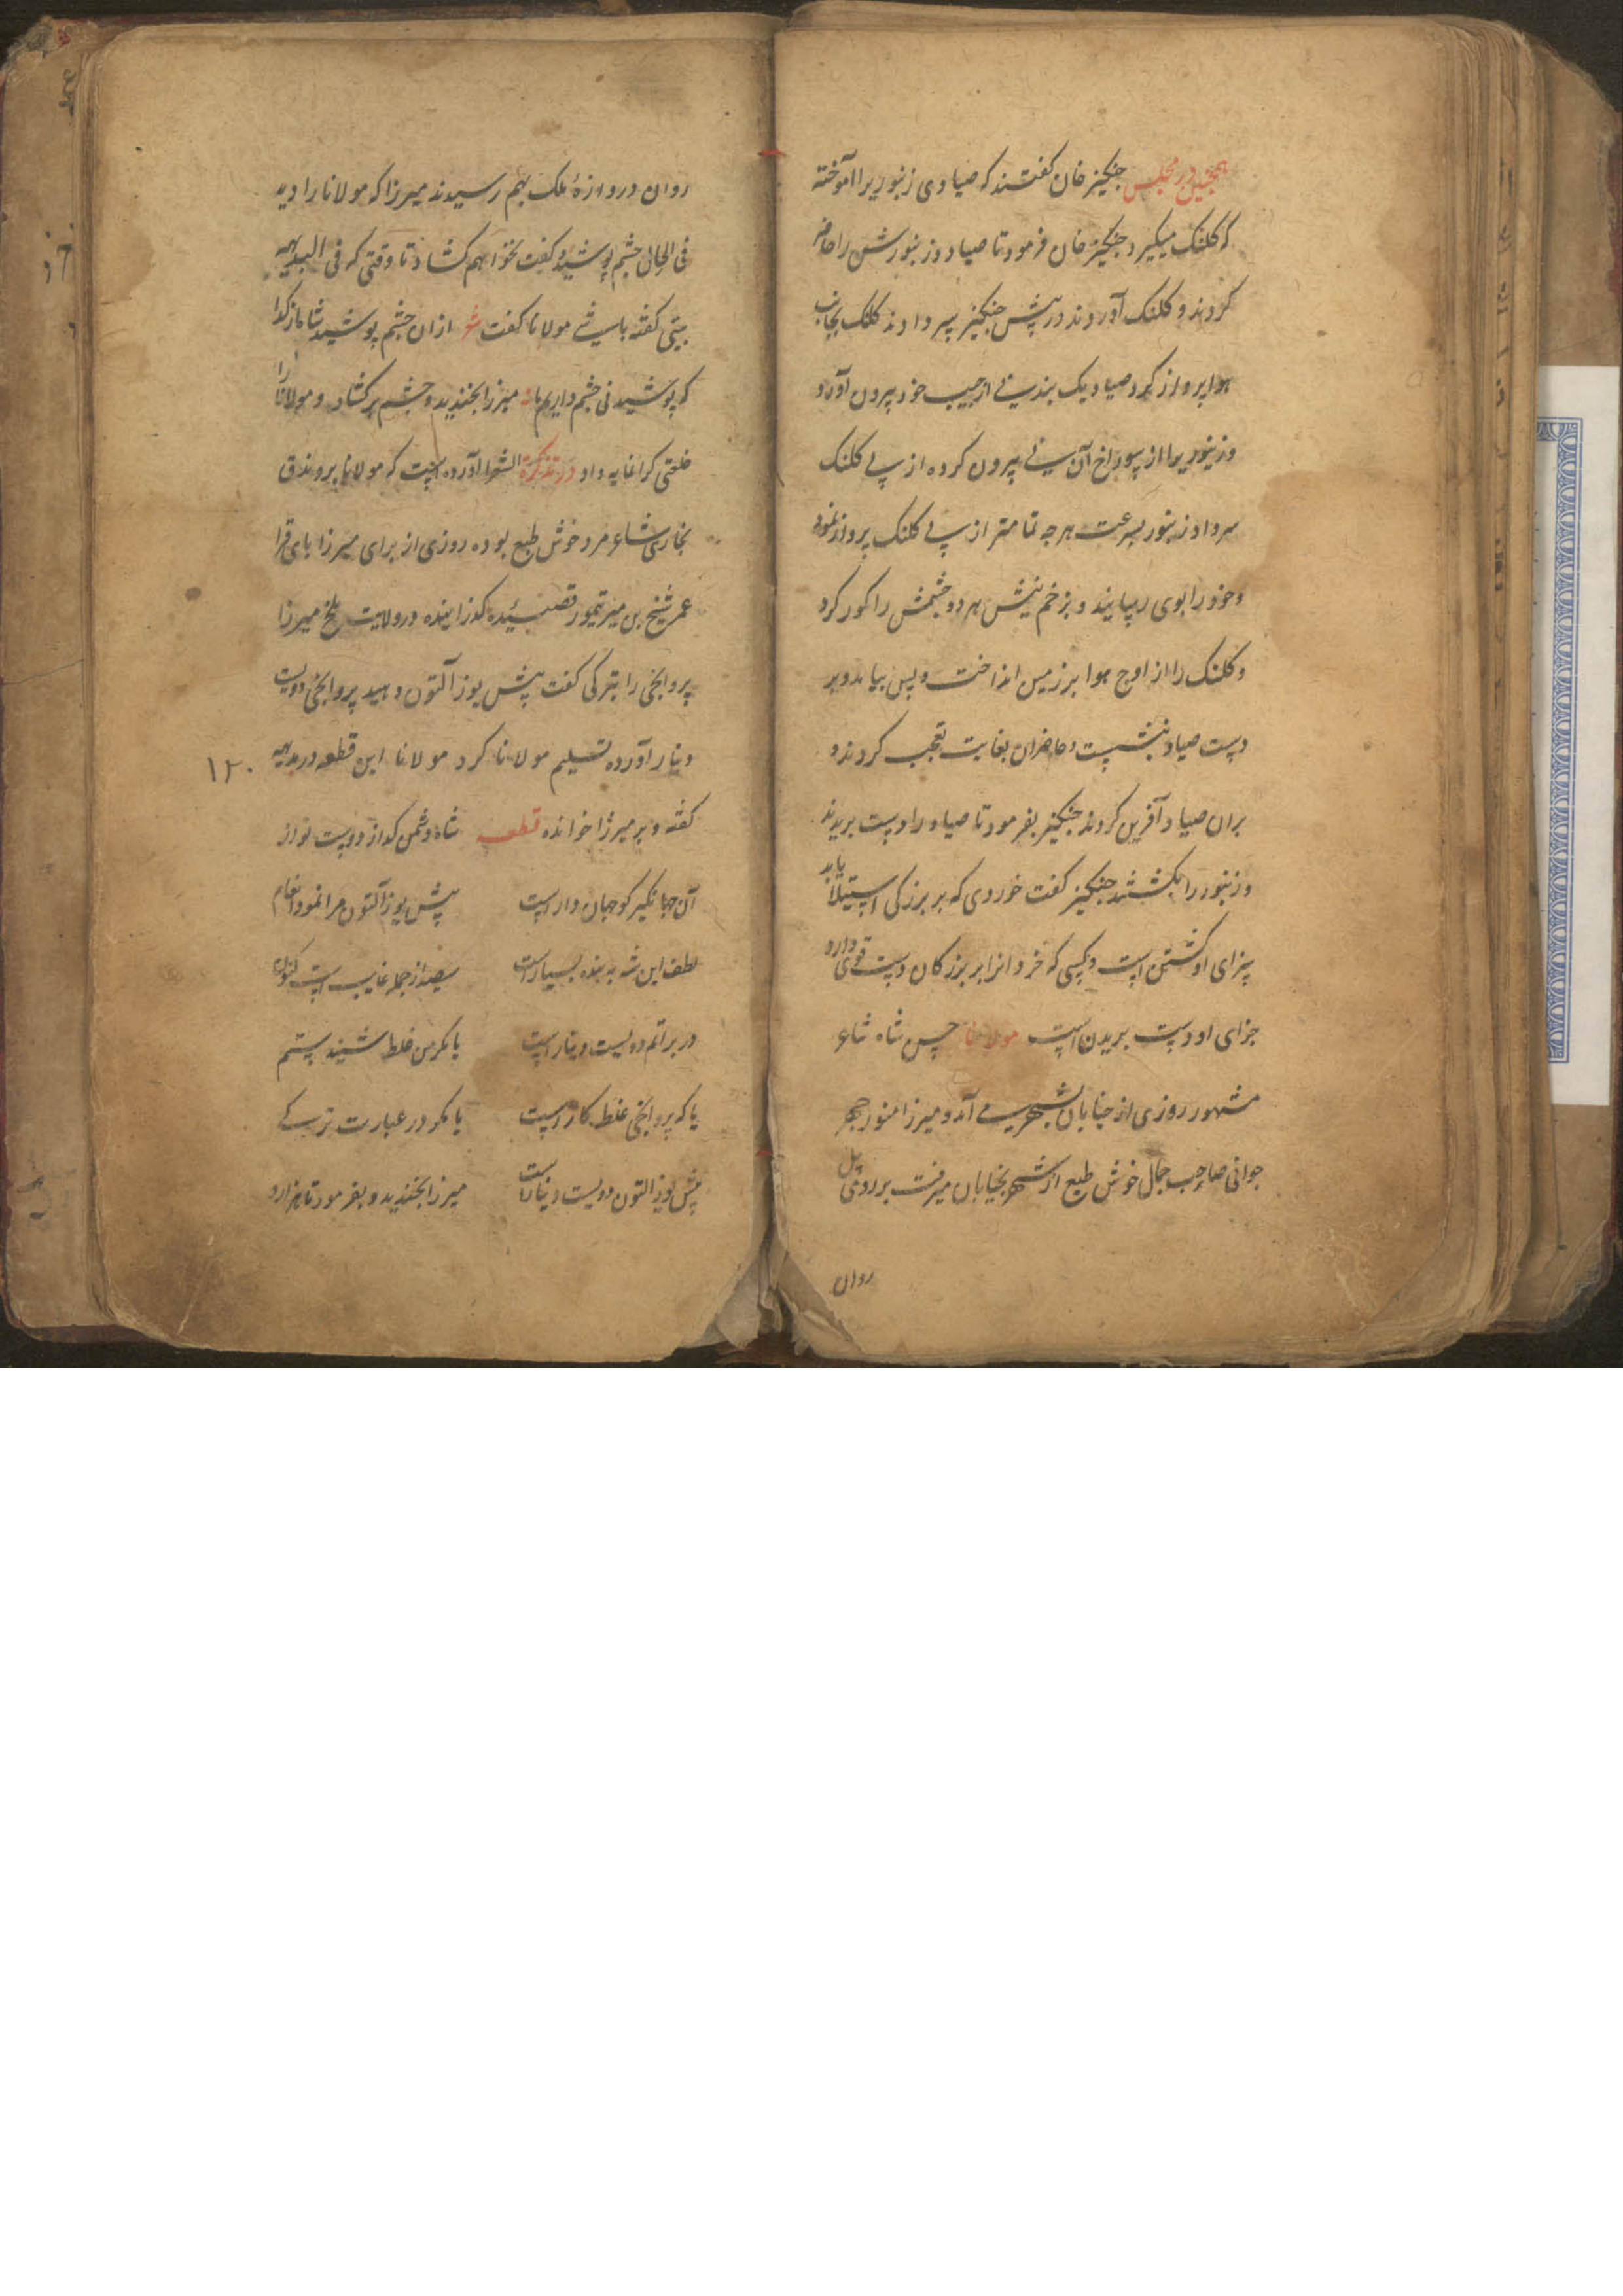 همچنین در مجلس جنکیز خان کفتند که صیادی زنبوریرا آموخته
که کلنک میکیرد جنکیز خان فرمود تا صیاد و زنبورش را حاضر
کردند و کلنک آوردند در پیش جنکیز سر دادند کلنک بجانب
هوا پرواز کرد صیاد یک بند نی از جیب خود بیرون آورد
و زنبوریرا از سوراخ آن نی بیرون کرده از پی کلنک
سر داد زنبور بسرعت هر چه تمامتر از پی کلنک پرواز نمود
و خود را بوی رسانید و بزخم نیش هر دو چشمش را کور کرد
و کلنک را از اوج هوا بر زمین انداخت و پس بیامد و بر
دست صیاد بنشست و حاضران بغایت تعجب کردند و
بران صیاد آفرین کردند جنکیز بفرمود تا صیاد را دست بریدند
و زنبور را بکشتند جنکیز کفت خوردی که بر بزرکی استیلا یابد
سزای او کشتن است و کسی که خردانرا بر بزرکان دست قوی دارد
جزای او دست بریدن است مولانا حسن شاه شاعر
مشهور روزی از خیابان بشهر می آمد و میرزا منوچهر
جوانی صاحب جمال خوش طبع از شهر بخیابان میرفت بر روی پل
روان
روان دروازهٔ ملک بهم رسیدند میرزا که مولانا را دید
فی الحال چشم پوشید و کفت نخواهم کشاد تا وقتی که فی البدیهه
بیتی کفته باشی مولانا کفت شعر ازان چشم پوشید شاه از کدا
که پوشیدنی چشم داریم ما میرزا بخندید و چشم بر کشاد و مولانا را
خلعتی کرانمایه داد در تذکرة الشعرا آورده است که مولانا برندق
بخاری شاعر مرد خوش طبع بوده روزی از برای میرزا بای قرا
عمر شیخ بن میر تیمور قصیده کذرانیده در ولایت بلخ میرزا
پروانجی را بترکی کفت بیش یوز آلتون دهید پروانجی دویست
دینار آورده تسلیم مولانا کرد مولانا این قطعه در بدیهه
۱۲۰
کفته و بر میرزا خوانده قطعه شاه دشمن کداز دوست نواز
آن جهانکیر کو جهان دار است بیش یوز آلتون مرا نمود انعام
لطف این شه به بنده بسیار است سیصد از جمله غایب است کنون
در براتم دویست دینار است یا مکر من غلط شنیدستم
یا که پروانجی غلط کار است یا مکر در عبارت ترکی
بیش یوز التون دویست دینار است میرزا بخندید و بفرمود تا هزار د